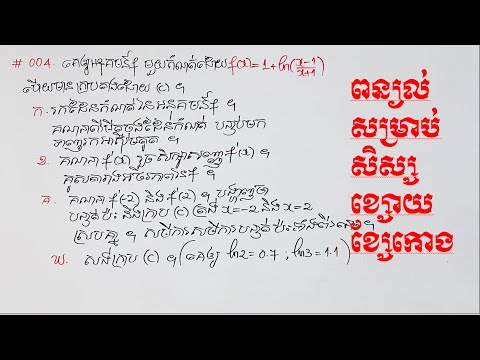 # 004. គេឲ្យអនុគមន៍ f មួយកំណត់ដោយ f(x) = 1 + ln(x-1/x+1)
ហើយមានក្រាបតាងដោយ (C) ។
ក. រកដែនកំណត់នៃអនុគមន៍ f ។
គណនាលីមីតចុងដែនកំណត់ បន្ទាប់មក
ទាញរកអាស៊ីមតូត ។
ខ. គណនា f'(x) រួចសិក្សាសញ្ញា f'(x) ។
គូសតារាងអថេរភាពនៃ f ។
គ. គណនា f'(-2) និង f'(2) ។ បង្ហាញថា
បន្ទាត់ប៉ះ នឹងក្រាប (C) ត្រង់ x = -2 និង x = 2
ស្របគ្នា ។ សរសើរសមីការបន្ទាត់ប៉ះទាំងពីរនោះ ។
ឃ. សង់ក្រាប (C) ។ (គេឲ្យ ln2 = 0.7 ; ln3 = 1.1)
ពន្យល់
សម្រាប់
សិស្ស
ខ្សោយ
ខ្សេកោង